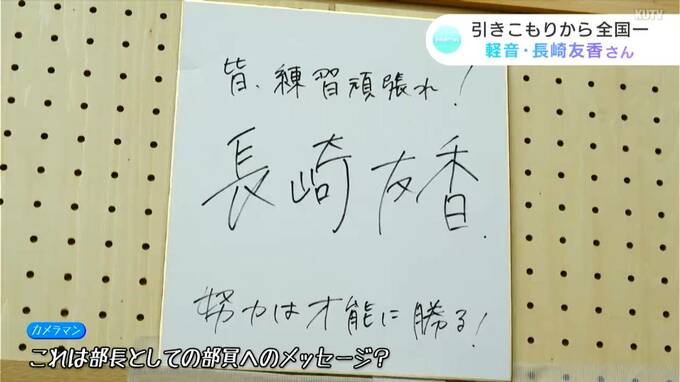 KUTV
引きこもりから全国一
軽音・長崎友香さん
皆、練習頑張れ!
長崎友香.
努力は才能に勝る!
カメラマン
これは部長としての部員へのメッセージ?